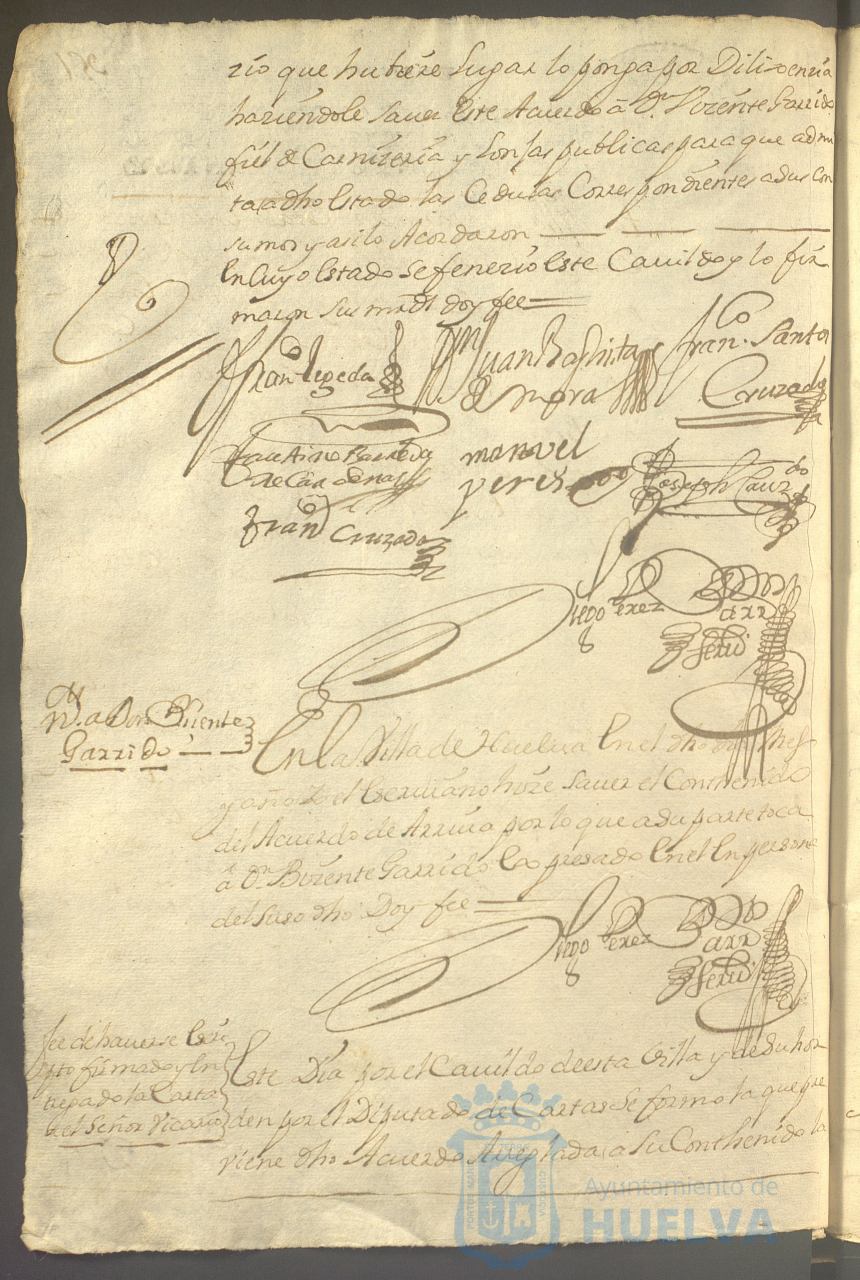 zio que hubiere Lugar lo ponga por Dilixencia
haziendole Saver Este Acuerdo â Dn. Vizente Garrido
fiel de Carnizeria y Lonjas publicas para que admi
ta a dho Estado las Cedulas Correspondientes a sus Con
sumos y asi lo Acordaron
En Cuyo Estado Se fenezio Este Cavildo y lo fir
maron Sus mrds doy fee
Fran.co Zepeda
Juan Baptista
de Mora
Fran.co Santos
Cruzado
Faustino Barreda
de Cardenas
manuel
peres
Joseph
Fran.co Cruzado
Diego Perez
N. a Don Vizente
Garrido
En la Villa de Huelva En el dho dia Mes
y año Yo el Escrivano hize Saver el Conthenido
del Acuerdo de Arriva por lo que a su parte toca
â Dn. Bizente Garrido Expresado En el En persona
del Suso dho Doy fee
Diego Perez
fee de haverse Escri
pto firmado y En
tregado la Carta
del Señor Vicario
Este Dia por el Cavildo de esta Villa y de Su hor
den por el Diputado de Cartas Se formo la que pre
viene dho Acuerdo Arreglada a Su Conthenido la
Ayuntamiento de
HUELVA